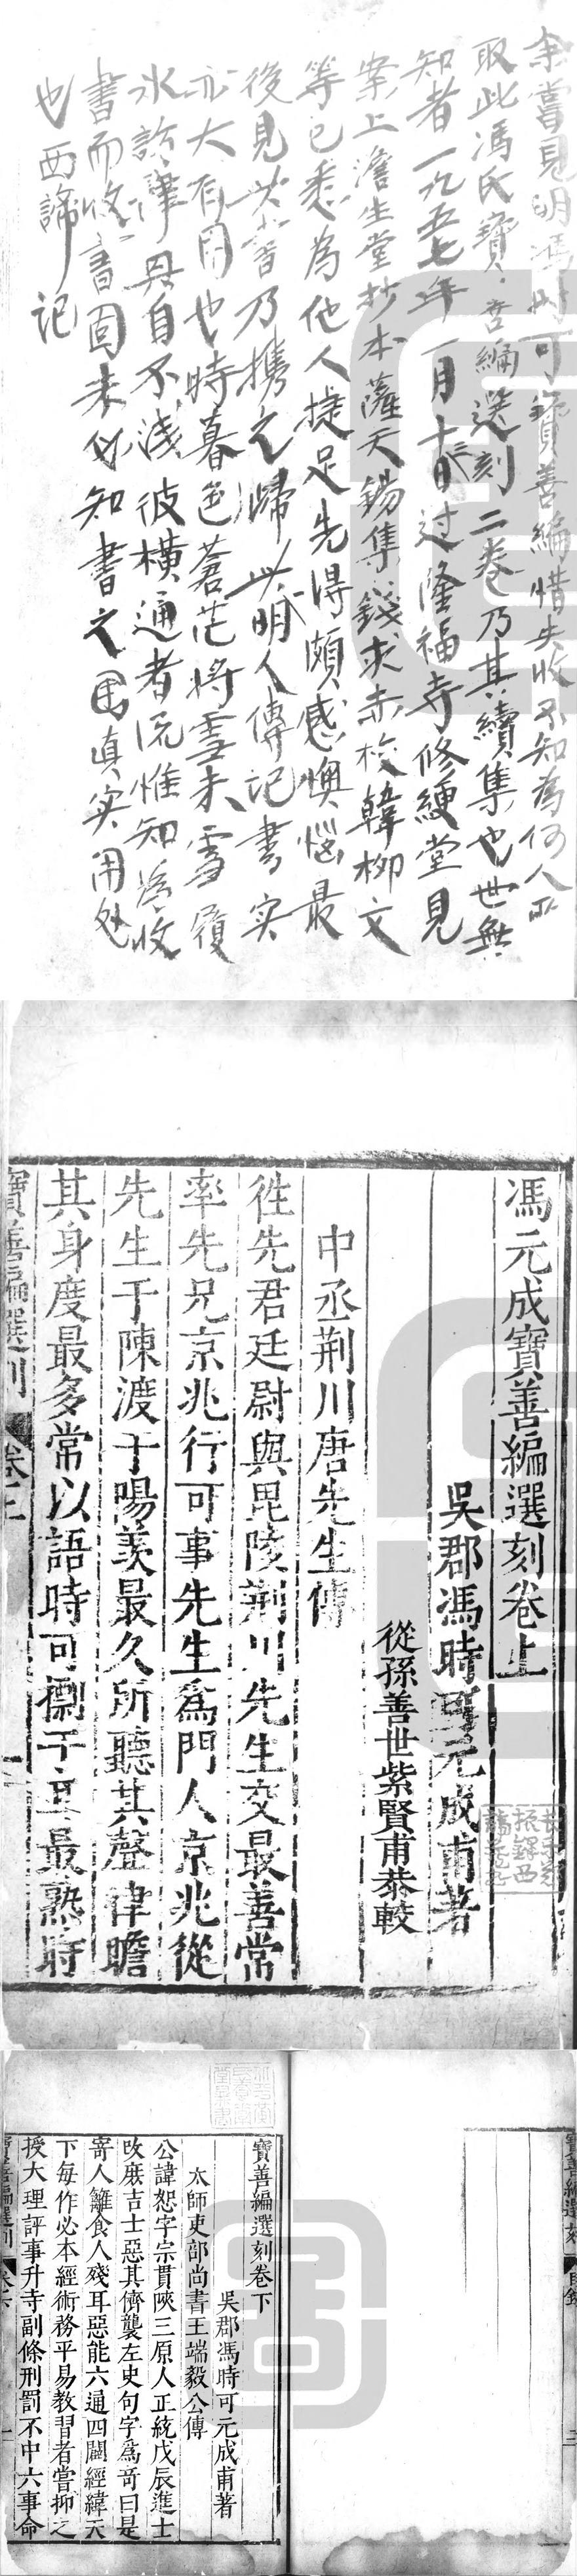 余嘗見明馮時可寶善編惜失收不知為何人所
取此馮氏寶善編選刻二卷乃其續集也世無
知者一九五七年一月十三日过隆福寺修綆堂見
案上澹生堂抄本薩天錫集錢求赤校韓柳文
等已悉為他人捷足先得頗感懊惱最
後見此書乃携之歸此明人傳記書实
亦大有用也時暮色蒼茫將雪未雪
水
自不淺彼橫通者流惟知為收
書而收書固未必知書之真实用处
也西諦記
馮元成寶善編選刻卷上
吳郡馮時可元成甫著
從孫善世紫賢甫恭較
中丞荊川唐先生傳
徃先君廷尉與毘陵荊川先生交最善常
率先兄京兆行可事先生爲門人京兆從
先生于陳渡于陽羨最久所聽其聲律瞻
其身度最多常以語時可 最熟時
寶善編選刻 卷上
寶善編選刻卷下
吳郡馮時可元成甫著
太師吏部尚書王端毅公傳
公諱恕字宗貫陝三原人正統戊辰進士
改庶吉士惡其儕襲左史句字爲奇曰是
寄人籬食人殘耳惡能六通四闢經緯天
下每作必本經術務平易教習者嘗抑之
授大理評事升寺副條刑罰不中六事命
寶善編選刻 目錄